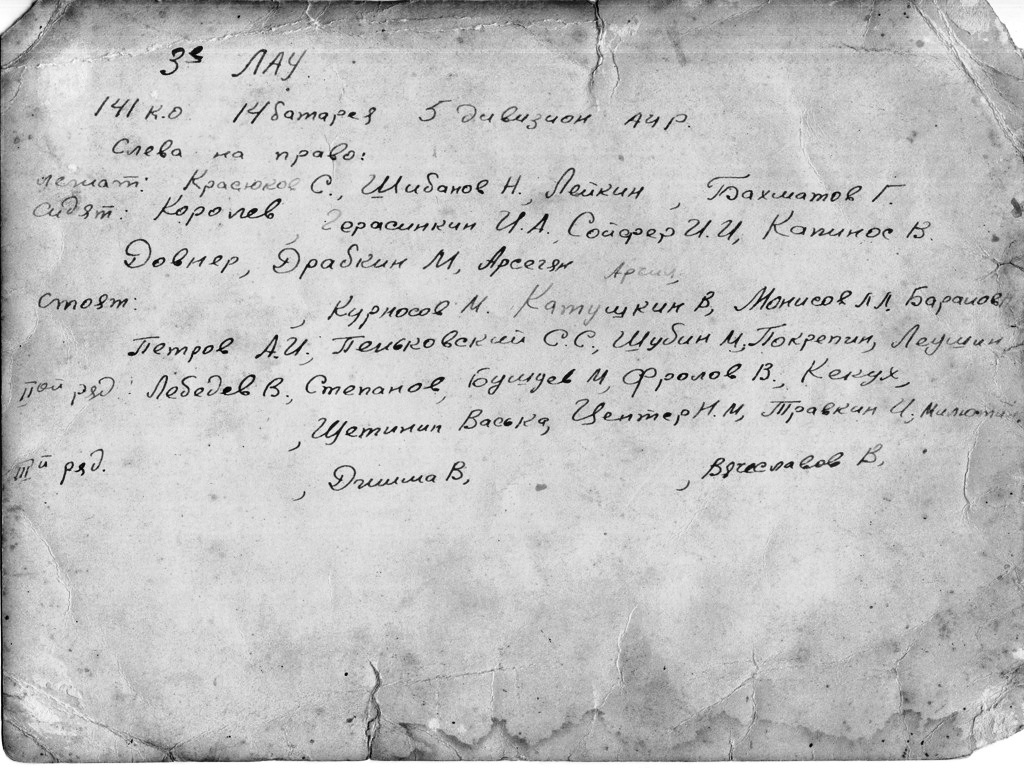 3е ЛАУ.
141 к.о 14 батарея 5 дивизион АИР.
Слева на право:
лежат: Красюков С., Шибанов Н., Лейкин , Бахматов Г.
сидят: Королев , Герасинкин И.А. Сойфер И.И, Капинос В.
Довнер, Драбкин М, Арсегян
Стоят: , Курносов М. Катушкин В, Монисов Баранов
Петров А.И., Пеньковский С.С., Шубин М, Покрепин, Леушин
IIой ряд: Лебедев В., Степанов, Бушуев М, Фролов В., Кекух,
, Щетинин Васька, Центер Н.М, Травкин И, Милютин
IIIй ряд. , Дзишма В, , Вячеславов В,